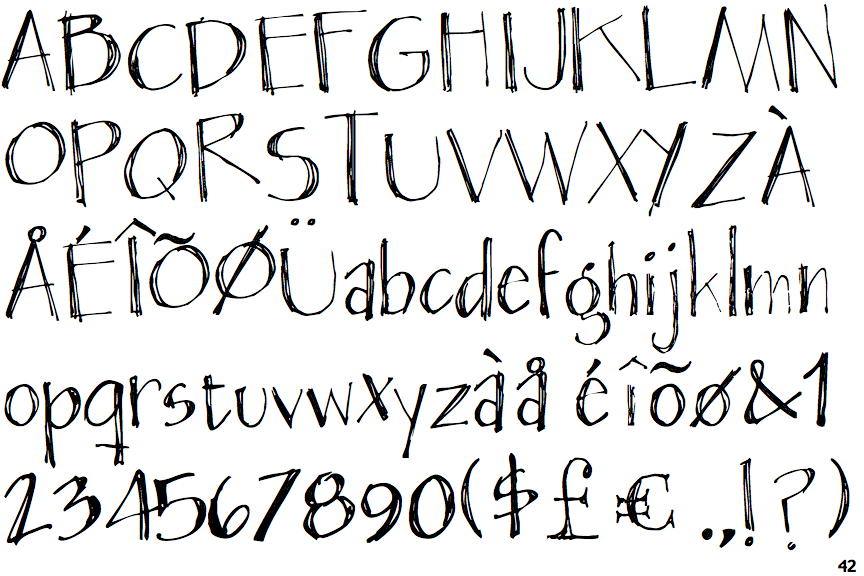 ABCDEFGHIJKLMN
OPQRSTUVWXYZÀ
ÅÉÎÕØÜabcdefghijklmn
opqrstuvwxyzàåéîõø&1
234567890($£€.,!?)
42